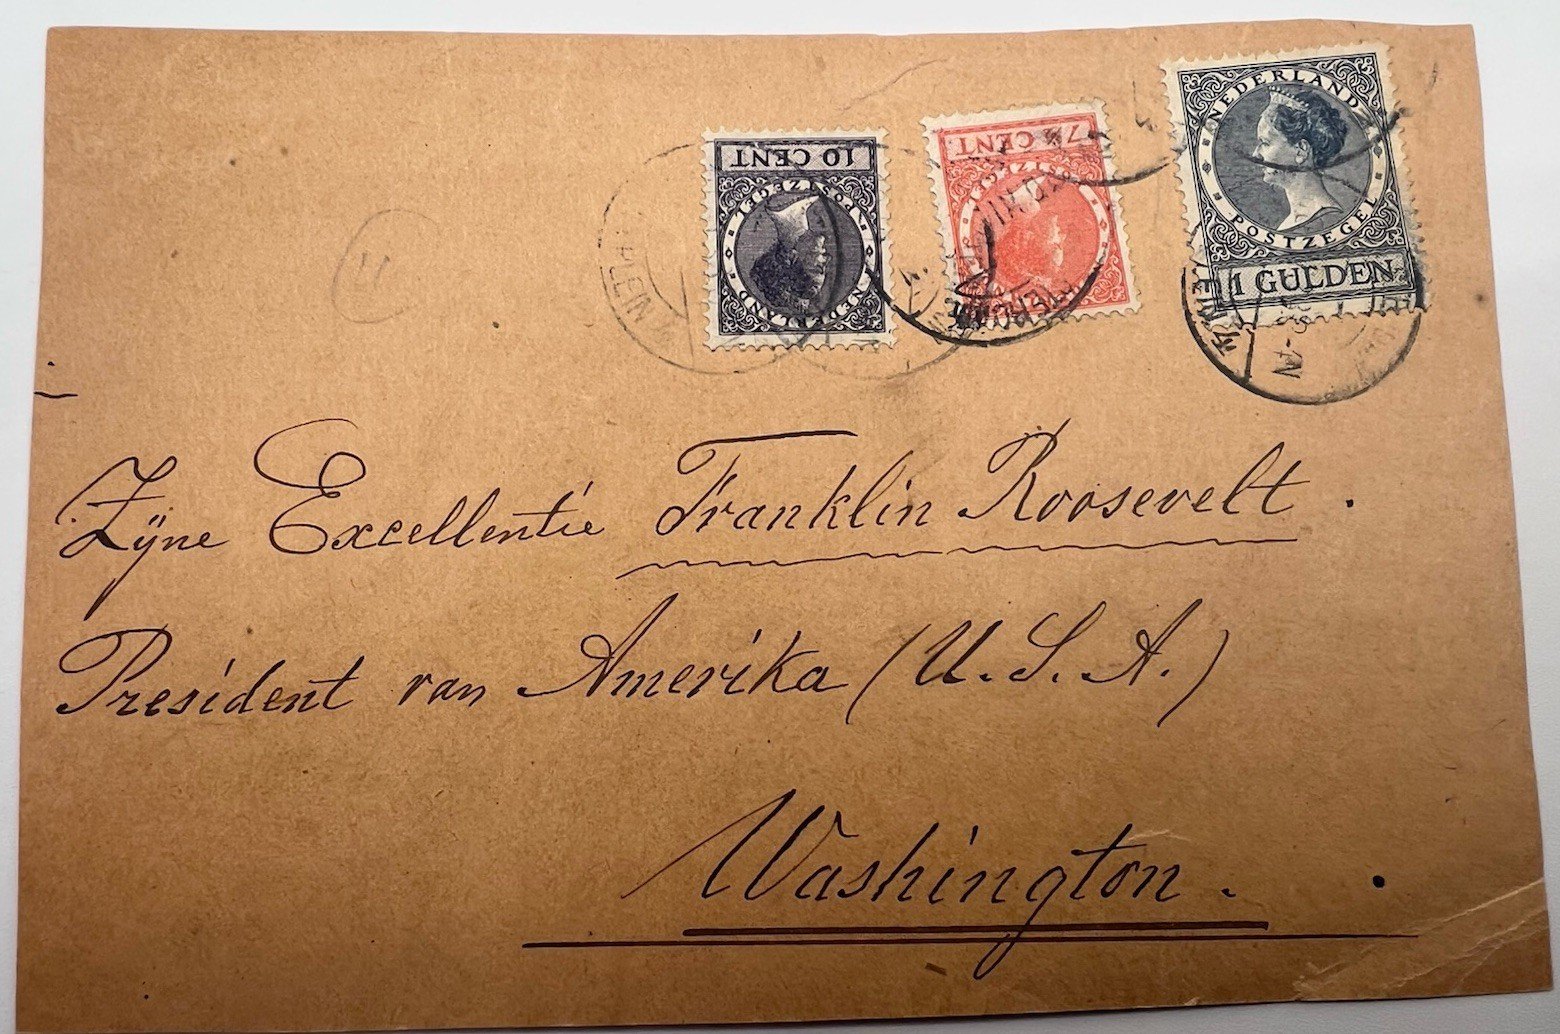 10 CENT
POSTZEGEL
NEDERLAND
7½ CENT
NEDERLAND
POSTZEGEL
1 GULDEN
Zijne Excellentie Franklin Roosevelt.
President van Amerika (U.S.A.)
Washington.